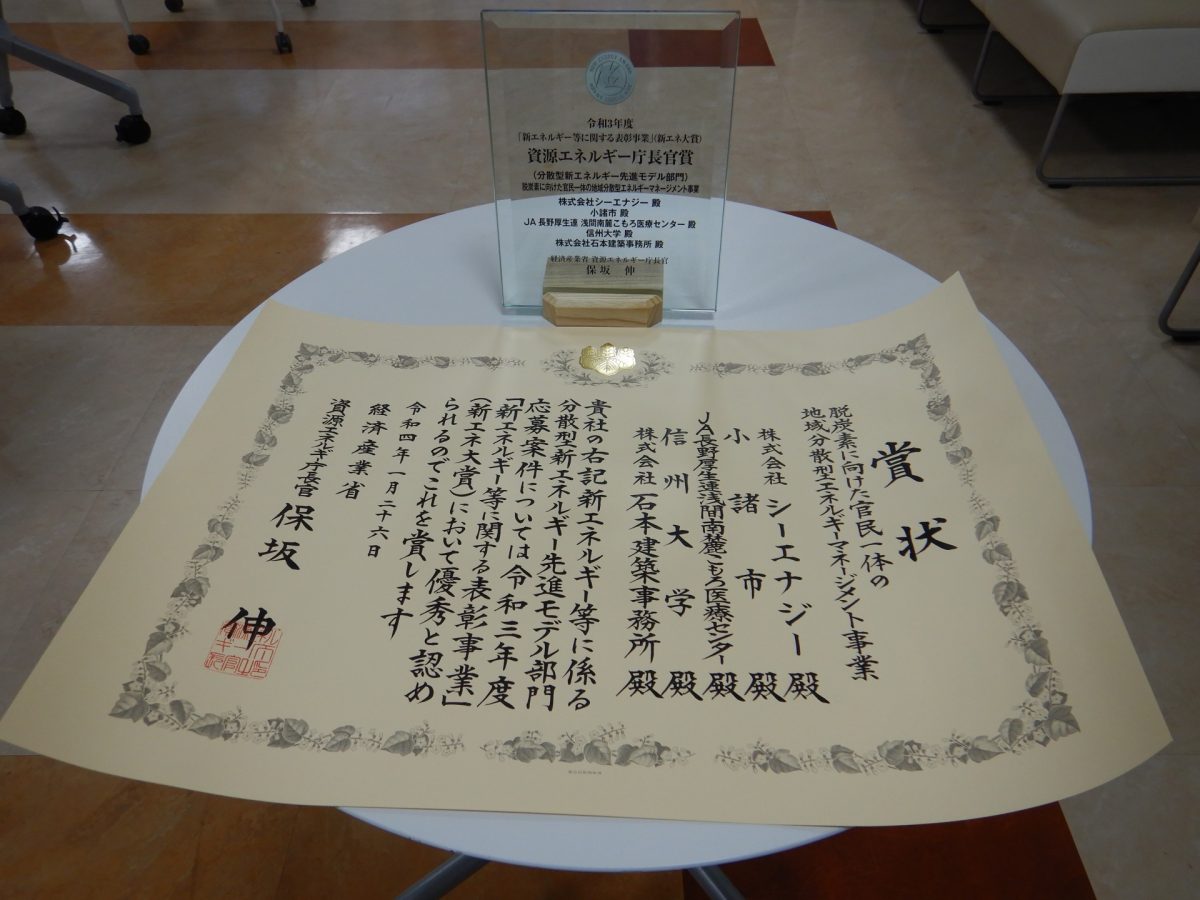 令和3年度
「新エネルギー等に関する表彰事業」(新エネ大賞)
資源エネルギー庁長官賞
(分散型新エネルギー先進モデル部門)
脱炭素に向けた官民一体の地域分散型エネルギーマネージメント事業
株式会社シーエナジー 殿
小諸市 殿
JA 長野厚生連 浅間南麓こもろ医療センター 殿
信州大学 殿
株式会社石本建築事務所 殿
経済産業省 資源エネルギー庁長官
保坂 伸
賞状
脱炭素に向けた官民一体の
地域分散型エネルギーマネージメント事業
株式会社 シーエナジー 殿
小諸市 殿
JA長野厚生連浅間南麓こもろ医療センター 殿
信州大学 殿
株式会社 石本建築事務所 殿
貴社の右記新エネルギー等に係る
分散型新エネルギー先進モデル部門
応募案件については令和三年度
「新エネルギー等に関する表彰事業」
(新エネ大賞)において優秀と認め
られるのでこれを賞します
令和四年一月二十六日
経済産業省
資源エネルギー庁長官 保坂 伸